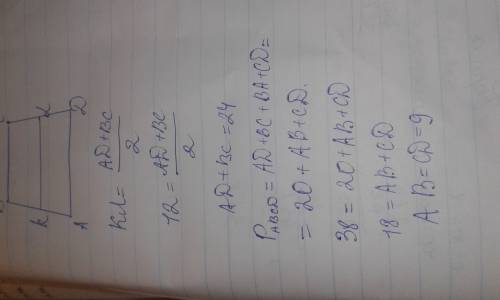 K L
A D
KL = AD+BC / 2
12 = AD+BC / 2
AD+BC = 24
P_ABCD = AD+BC+BA+CD=
= 20 + AB+CD.
38 = 20 + AB+CD
18 = AB+CD
AB=CD=9